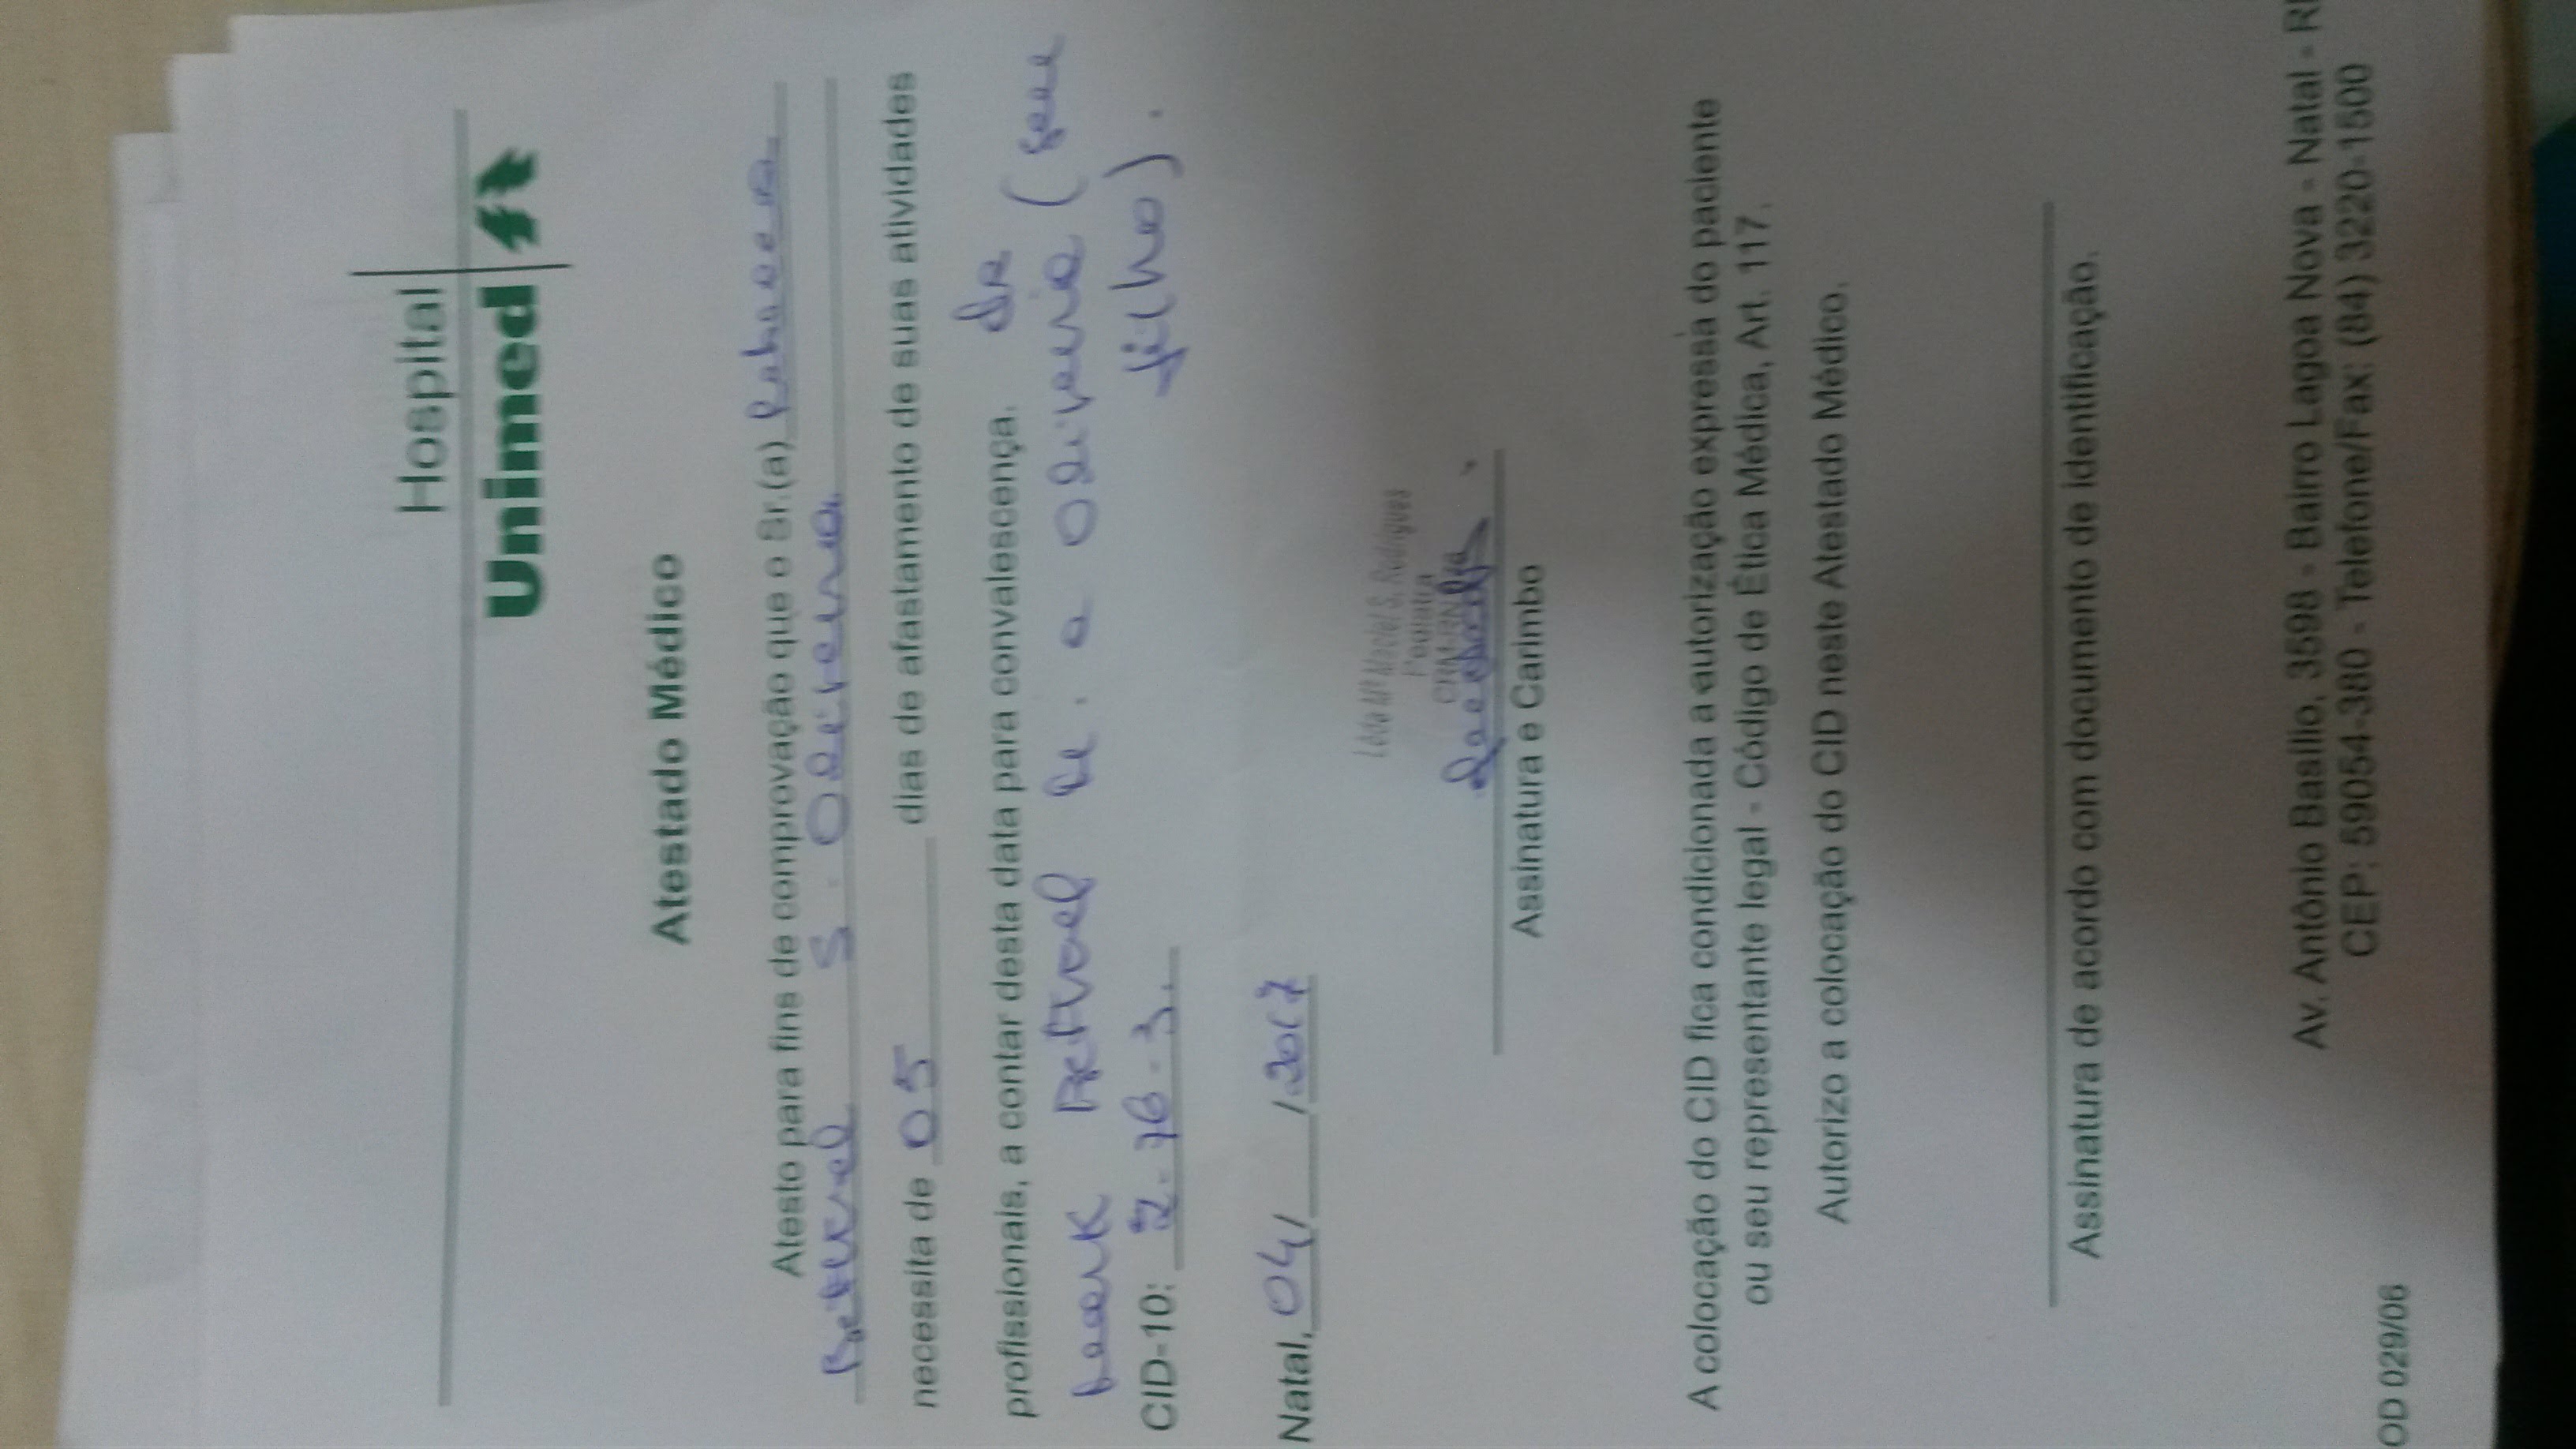 Hospital
Unimed
Atestado Médico
Atesto para fins de comprovação que o Sr.(a) Rebecca
Bethuel S. Oliveira
necessita de 05 dias de afastamento de suas atividades
profissionais, a contar desta data para convalescença. de
Bethuel de . a Oliveira (seu
filho).
CID-10: Z. 76. 3.
Natal, 04/ /2017
Lêda Mª Maciel S. Rodrigues
Pediatra
CRM-RN
Assinatura e Carimbo
A colocação do CID fica condicionada a autorização expressa do paciente
ou seu representante legal - Código de Ética Médica, Art. 117.
Autorizo a colocação do CID neste Atestado Médico.
Assinatura de acordo com documento de identificação.
Av. Antônio Basílio, 3598 - Bairro Lagoa Nova - Natal - R
CEP: 59054-380 - Telefone/Fax: (84) 3220-1500
OD 029/06